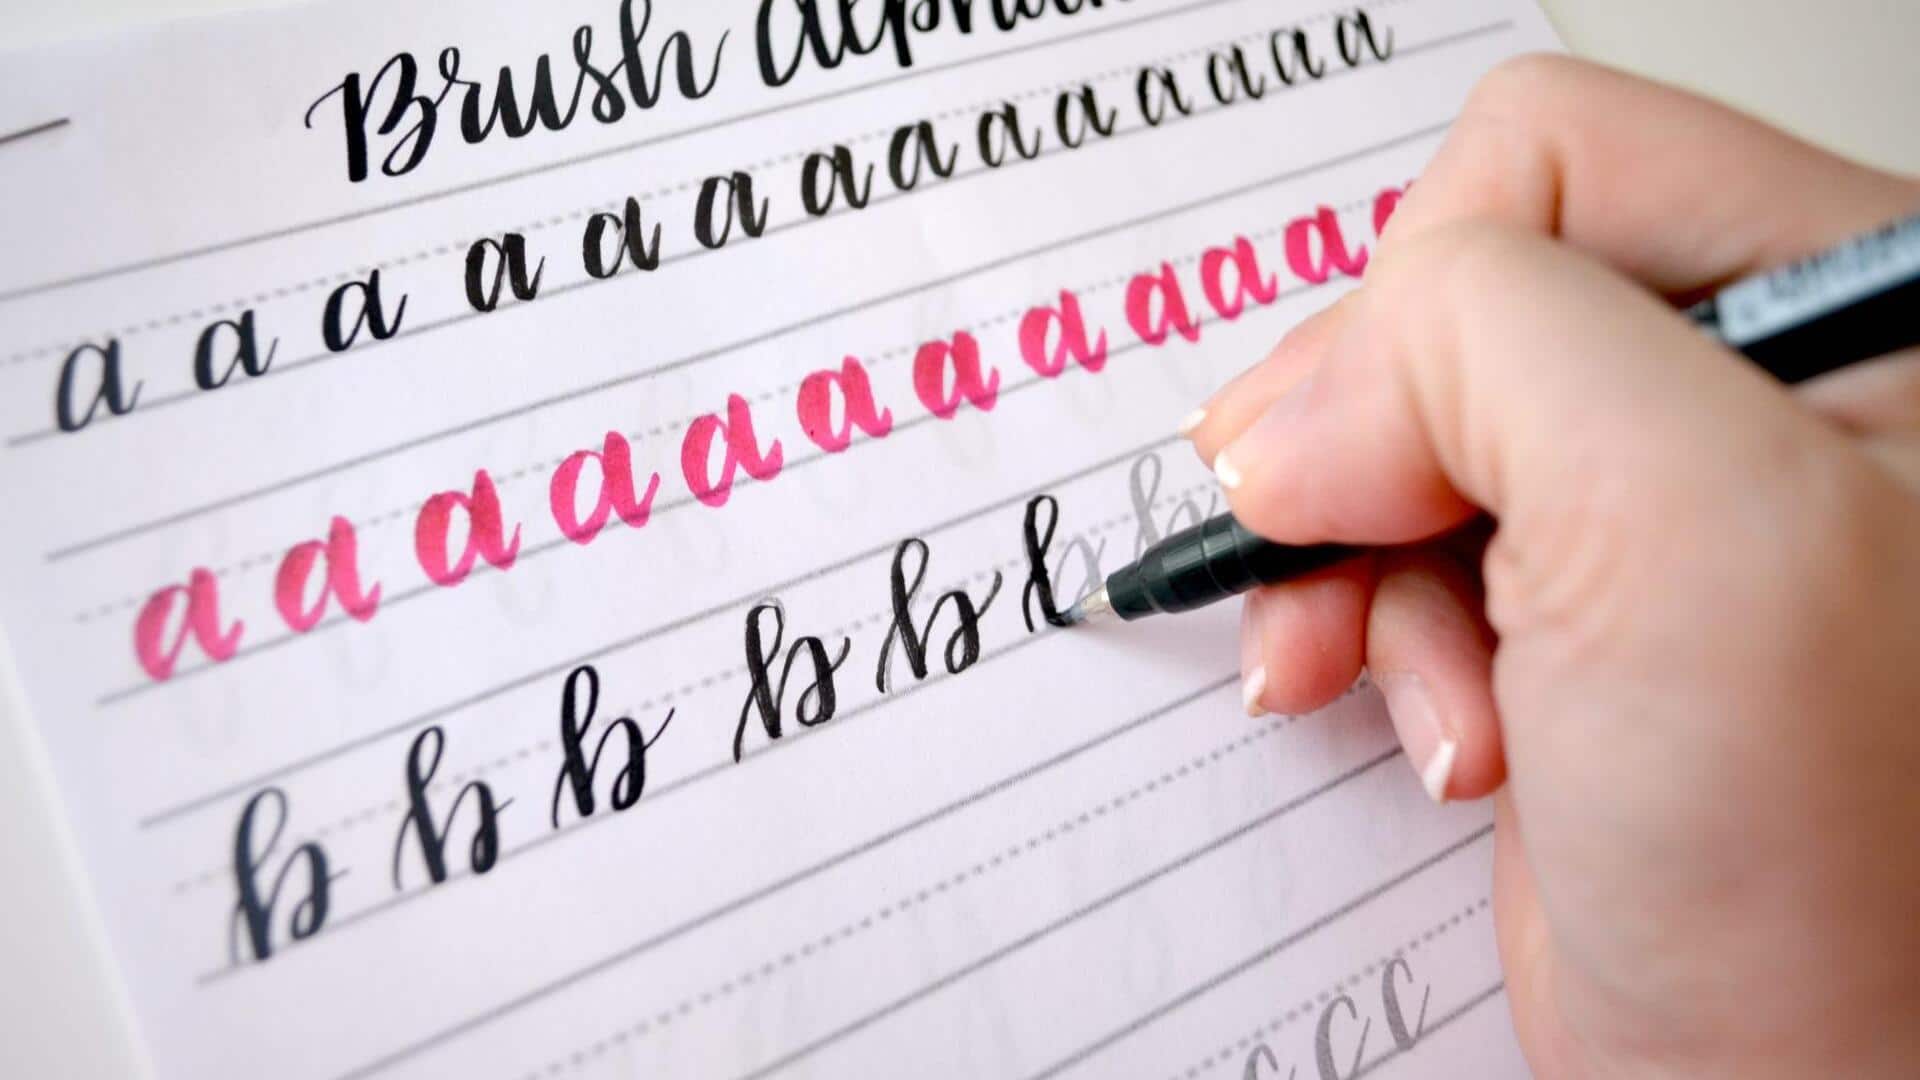 Brush Alpha
a a a a a a a a a a a a a a
a a a a a a a a a a a a
b b b b b b b
c c c